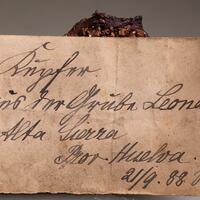 Kupfer.
aus der Grube Leona
Alta Sierra
Prov. Huelva.
21/9. 88.